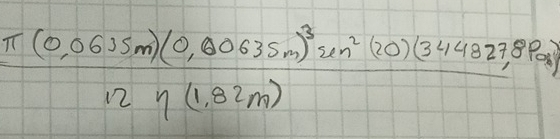 π (0,0635m)(0,00635m)³ sen² (20)(344827,8Pa)
12 η (1,82m)